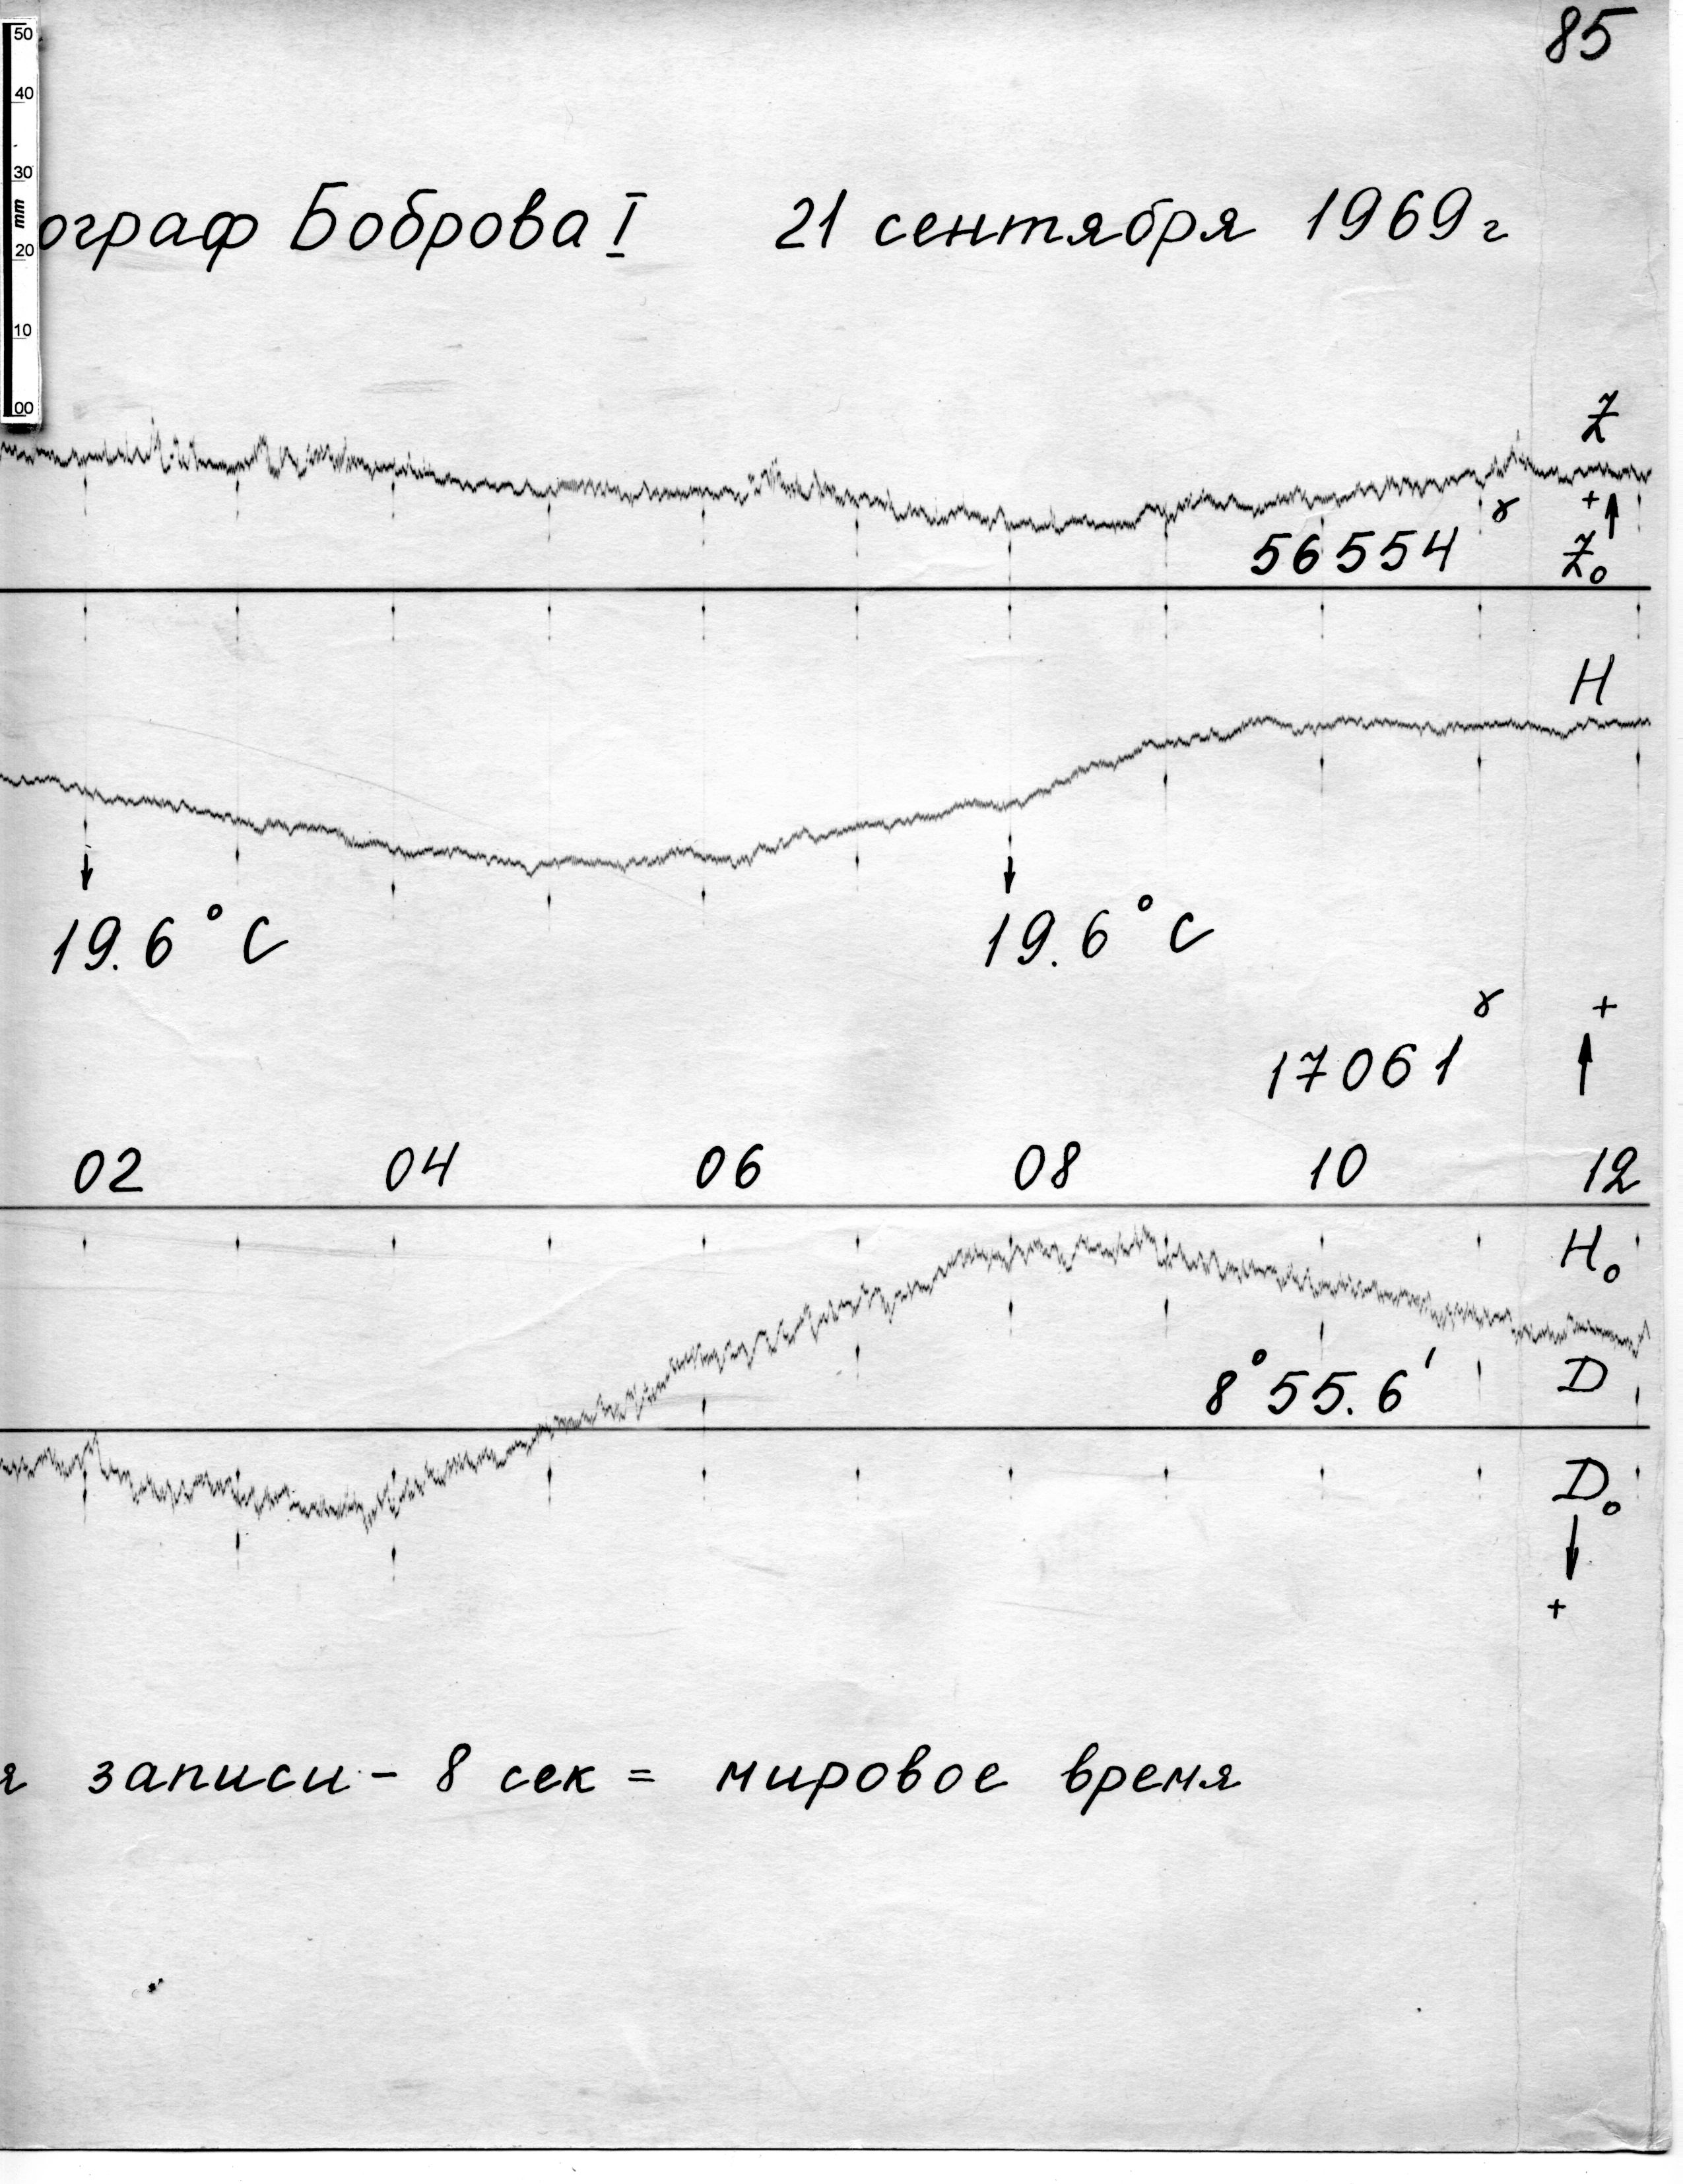 85
50
40
30
mm
20
10
00
ограф Боброва I 21 сентября 1969 г
Z
56554 γ +
Z₀
H
19.6°C 19.6°C
17061 γ +
02 04 06 08 10 12
H₀
8°55.6′ D
D₀
+
я записи - 8 сек = мировое время